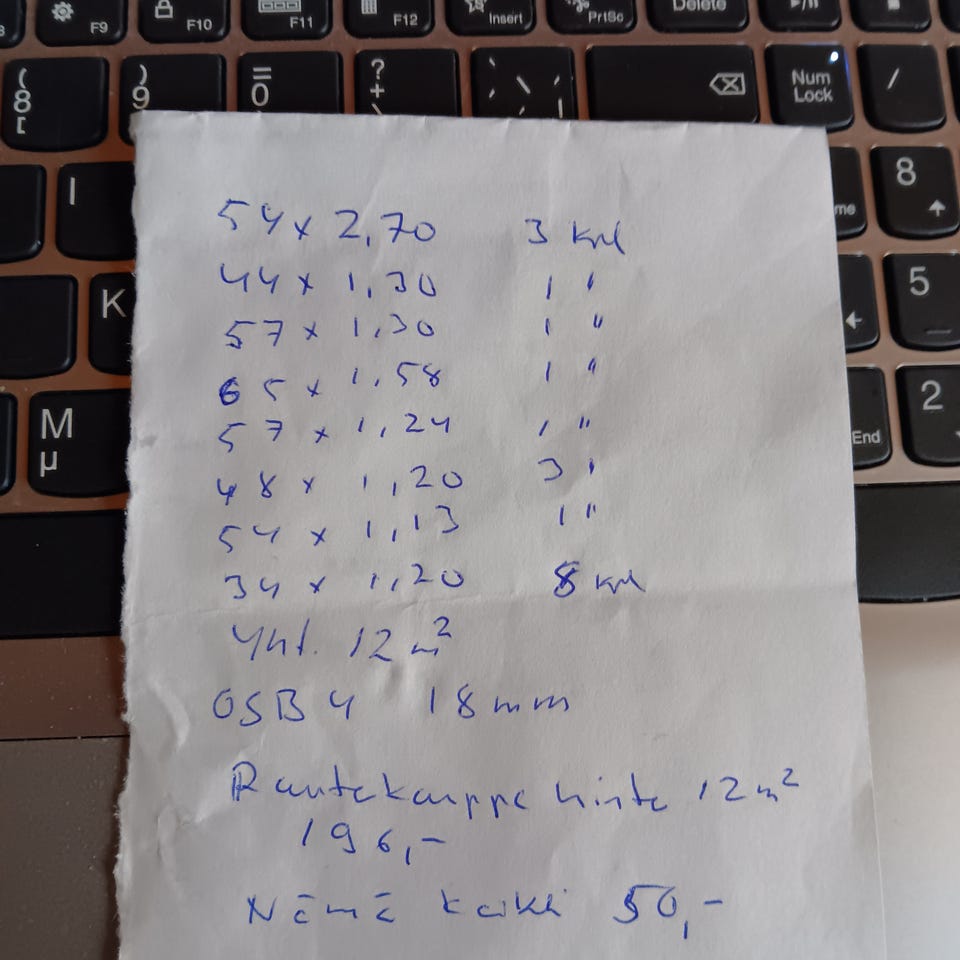 F9 F10 F11 F12 Insert PrtSc Delete
( 8 [ ) 9 = 0 ? + \ Num Lock /
I 8
K 5
M µ End 2
54 x 2,70 3 kpl
44 x 1,30 1 "
57 x 1,30 1 "
65 x 1,58 1 "
57 x 1,24 1 "
48 x 1,20 3 "
54 x 1,13 1 "
34 x 1,20 8 kpl
Yht. 12 m²
OSB 4 18 mm
Rautakauppa hinta 12 m²
196,-
Nämä kaikki 50,-